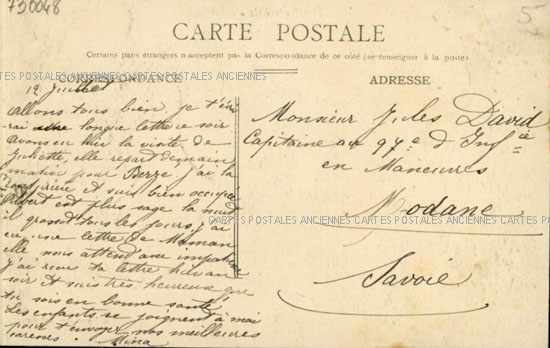 730048
5
CARTE POSTALE
Certains pays étrangers n'acceptent pas la Correspondance de ce côté (se renseigner à la poste)
CORRESPONDANCE
ADRESSE
CARTES POSTALES ANCIENNES CARTES POSTALES ANCIENNES
12 Juillet
Allons tous bien, je t'écri
rai longue lettre ce soir
avons eu hier la visite de
Juliette, elle repart demain
matin pour Berze j'ai la
et suis bien occupée
Albert est plus sage la nuit
il grandit tous les jours, j'ai
eu une lettre de Maman
elle nous attend avec impatience
j'ai reçu ta lettre hier au
soir et suis très heureuse que
tu sois en bonne santé
Les enfants se joignent à moi
pour t'envoyer nos meilleures
caresses. Mina
Monsieur Jules David
Capitaine au 97e d'Infie
en Manœuvres
Modane
Savoie
CARTES POSTALES ANCIENNES CARTES POSTALES ANCIENNES